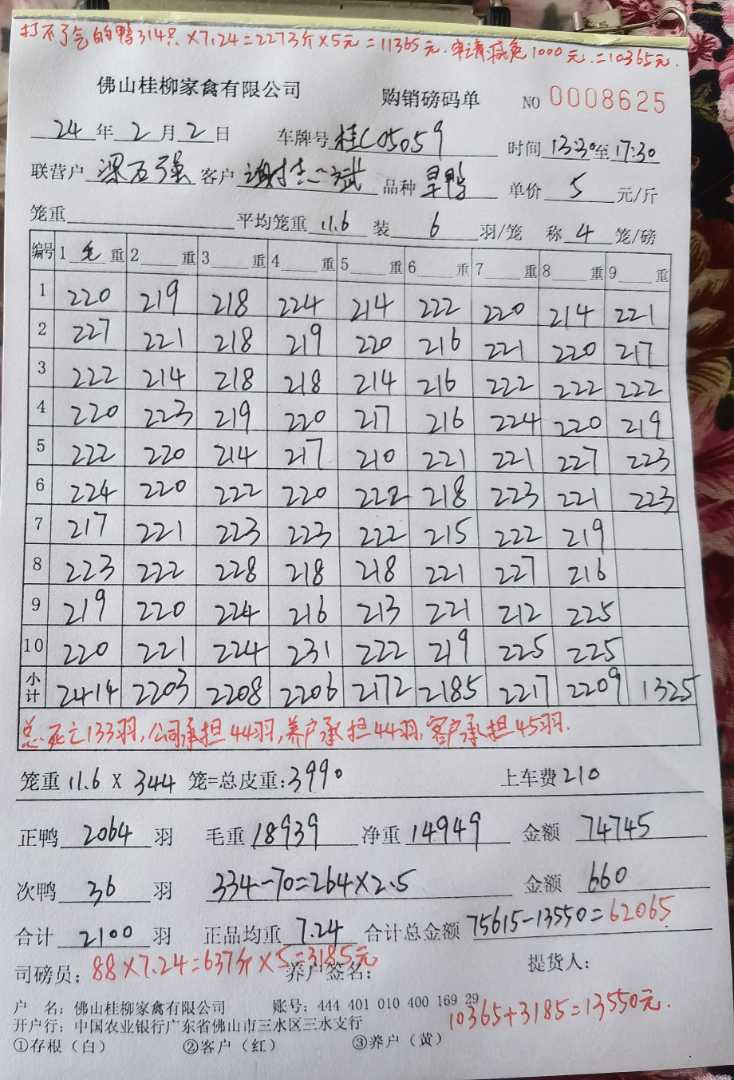 打不了气的鸭314只×7.24=2273斤×5元=11365元.申请减免1000元.=10365元.
佛山桂柳家禽有限公司 购销磅码单 NO 0008625
24年2月2日 车牌号 桂C05059 时间 13:30至17:30
联营户 梁石强 客户 谢志斌 品种 旱鸭 单价 5 元/斤
笼重 平均笼重 11.6 装 6 羽/笼 称 4 笼/磅
编号 1 毛 重 2 重 3 重 4 重 5 重 6 重 7 重 8 重 9 重
1 220 219 218 224 214 222 220 214 221
2 227 221 218 219 220 216 221 220 217
3 222 214 218 218 214 216 222 222 222
4 220 223 219 220 217 216 224 220 219
5 222 220 214 217 210 221 221 227 223
6 224 220 222 220 222 218 223 221 223
7 217 221 223 223 222 215 222 219
8 223 222 228 218 218 221 227 216
9 219 220 224 216 213 221 212 225
10 220 221 224 231 222 219 225 225
小计 2414 2203 2208 2206 2172 2185 2217 2209 1325
总死亡133羽,公司承担44羽,养户承担44羽,客户承担45羽.
笼重 11.6 × 344 笼=总皮重:3990 上车费 210
正鸭 2064 羽 毛重 18939 净重 14949 金额 74745
次鸭 36 羽 334-70=264×2.5 金额 660
合计 2100 羽 正品均重 7.24 合计总金额 75615-13550=62065
司磅员: 88×7.24=637斤×5=3185元 养户签名: 提货人:
户 名: 佛山桂柳家禽有限公司 账号: 444 401 010 400 169 29
10365+3185=13550元.
开户行: 中国农业银行广东省佛山市三水区三水支行
①存根(白) ②客户(红) ③养户(黄)